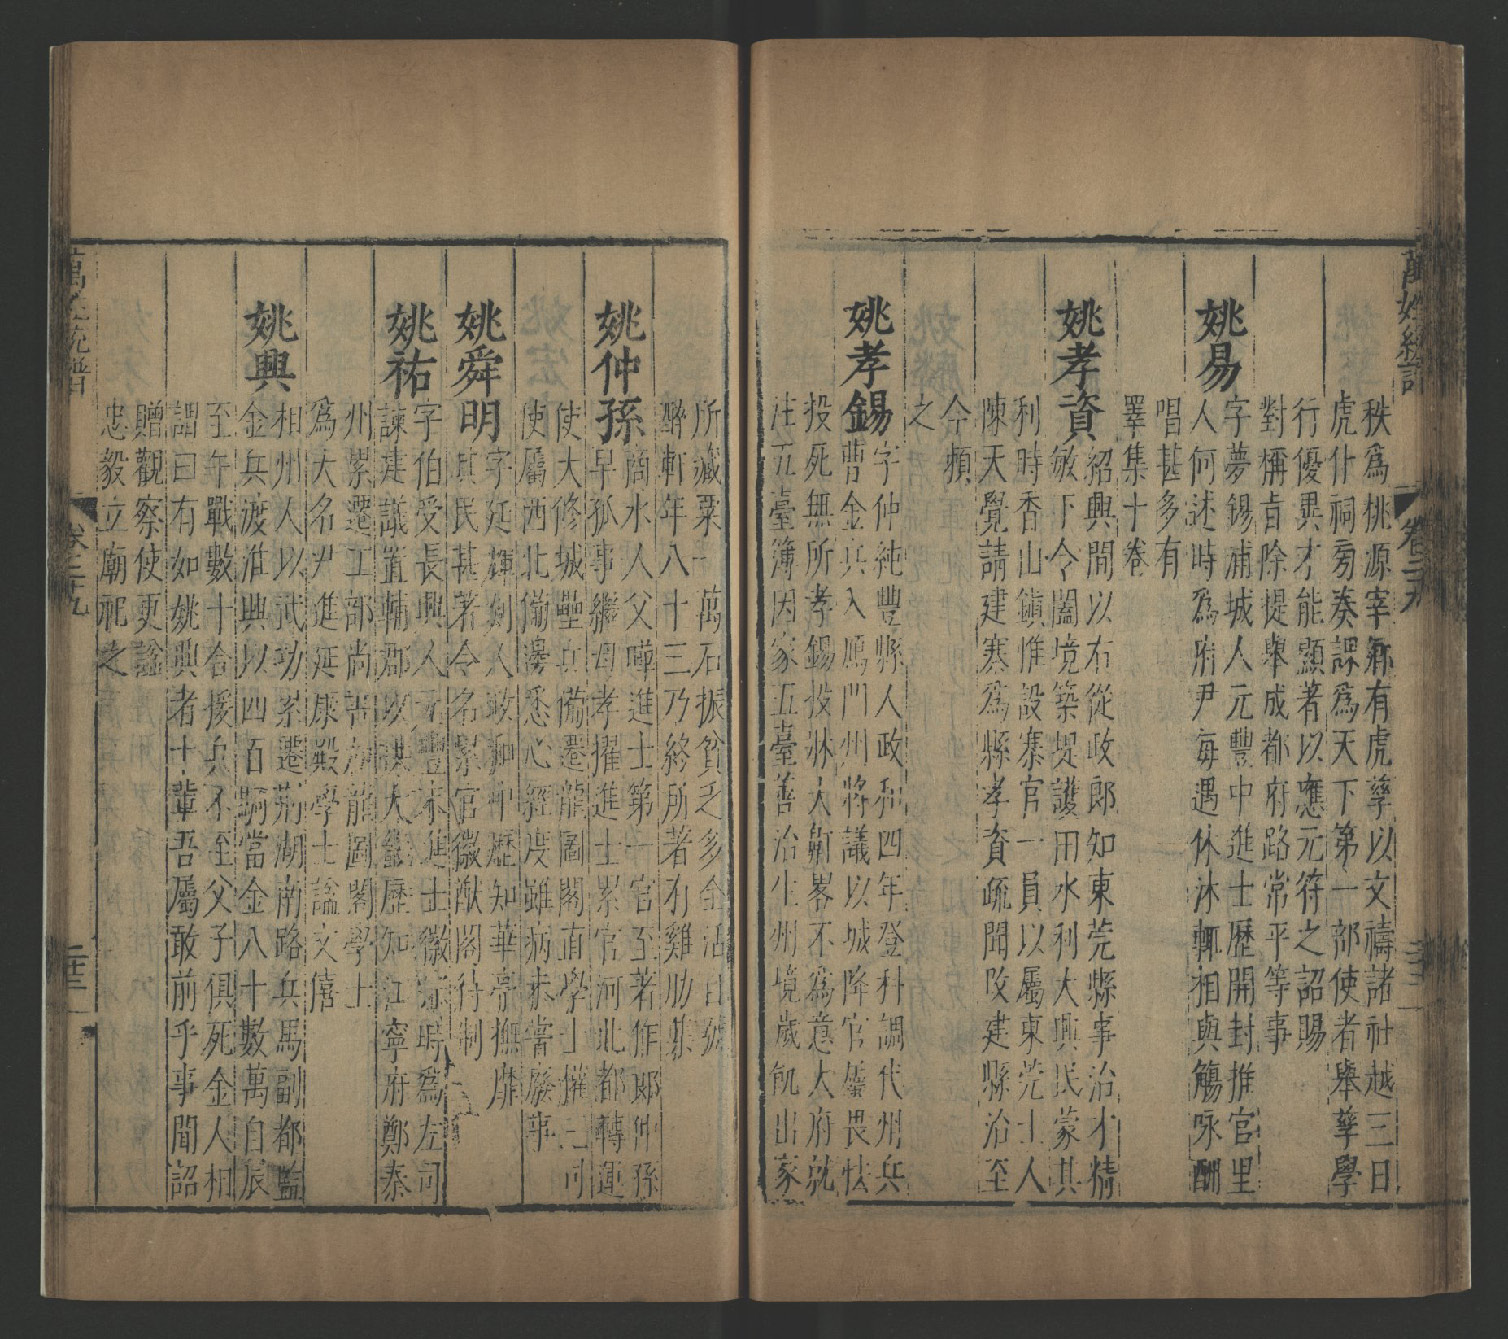 秩爲桃源宰郡有虎孳以文禱諸社越三日
虎仆祠旁湊課爲天下第一部使者舉孳學
行優異才能顯著以應元符之詔賜
對稱旨除提舉成都府路常平等事
姚易
字夢錫浦城人元豐中進士歷開封推官里
人何述時爲府尹每遇休沐輒相與觴咏酬
唱甚多有
睪集十卷
姚孝資
紹興間以右從政郎知東莞縣事治才精
敏下令闔境築堤護田水利大興民蒙其
利時香山鎮惟設寨官一員以屬東莞士人
陳天覺請建寨爲縣孝資疏聞改建縣治至
今賴
之
姚孝錫
字仲純豐縣人政和四年登科調代州兵
曹金兵入鴈門州將議以城降官屬畏怯
投死無所孝錫投牀大鼾畧不爲意大府就
注五臺簿因家五臺善治生州境歲飢出家
所藏粟一萬石振貧乏多全活自號
醉軒年八十三乃終所著有雞肋集
姚仲孫
商水人父曄進士第一官至著作郎仲孫
早孤事繼母孝擢進士累官河北都轉運
使大修城壘兵備遷龍圖閣直學士權三司
使屬西北備邊悉心經度雖病未嘗廢事
姚舜明
字廷輝剡人政和中歷知華亭撫靡
瘼民甚著令名累官徽猷閣待制
姚祐
字伯受長興人元豐末進士徽宗時爲左司
諫建議置輔郡以拱大畿歷知江寧府鄭泰
州累遷工部尚書加龍圖閣學士
爲大名尹進延康殿學士諡文僖
姚興
相州人以武功累遷荊湖南路兵馬副都監
金兵渡淮興以四百騎當金八十數萬自辰
至午戰數十合援兵不至父子俱死金人相
謂曰有如姚興者十輩吾屬敢前乎事聞詔
贈觀察使更諡
忠毅立廟祀之
萬姓統譜
卷三十九